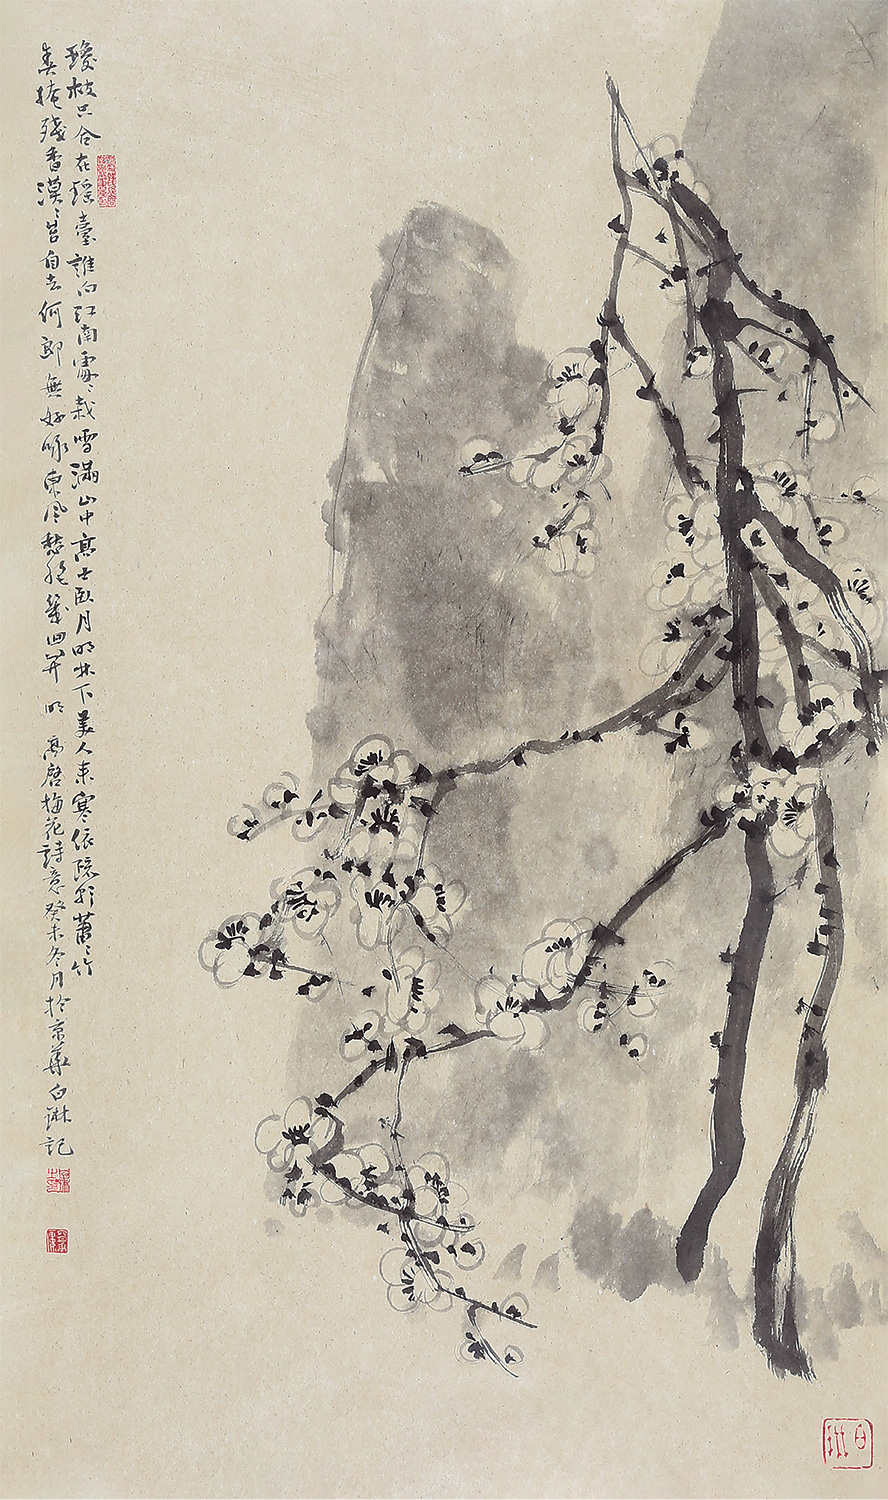 瓊枝只合在瑤臺誰向江南處〻栽雪滿山中高士臥月明林下美人来寒依疏影蕭〻竹
春掩殘香漠〻苔自去何郎無好咏東風愁絕幾回開 明 高啓梅花詩意癸未冬月於京華白琳記
白琳